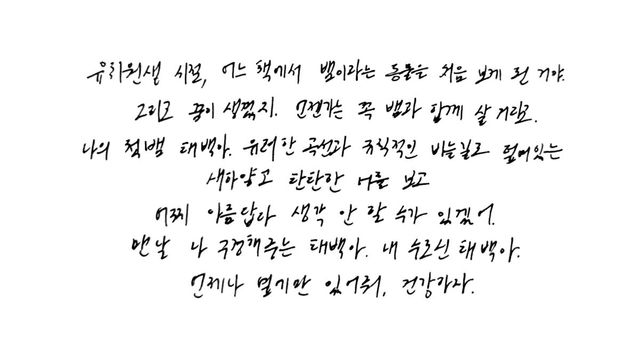 유치원생 시절, 어느 책에서 뱀이라는 동물을 처음 보게 된 거야.
그리고 꿈이 생겼지. 언젠가는 꼭 뱀과 함께 살 거라고.
나의 첫 뱀 태백아. 유려한 곡선과 규칙적인 비늘길로 덮여있는
새하얗고 탄탄한 너를 보고
어찌 아름답다 생각 안 할 수가 있겠어.
맨날 나 구경해주는 태백아. 내 수호신 태백아.
언제나 곁에만 있어줘, 건강하자.